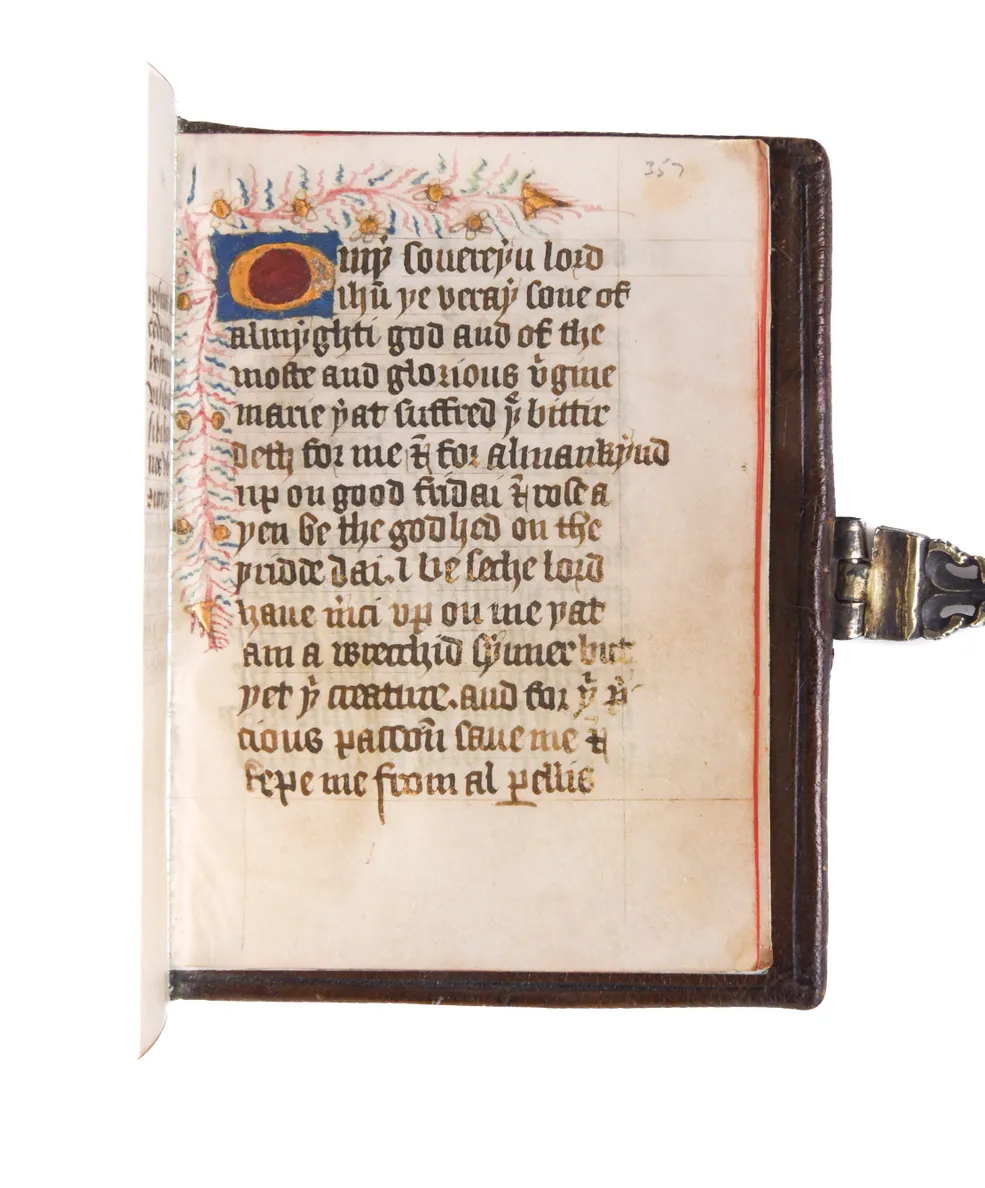 357
O my souereyn lord
ihū ye veray sone of
almyghti god and of the
moste and glorious v̾gine
marie yat suffred yͤ bittir
deth for me & for almankynd
up on good fridai & rose a
yen be the godhed on the
yridde dai. I be seche lord
haue m̄ci vp on me yat
am a wrecchid synner but
yet yͥ creature. and for yͥ p̾
cious passioū saue me &
kepe me from al ꝑellis